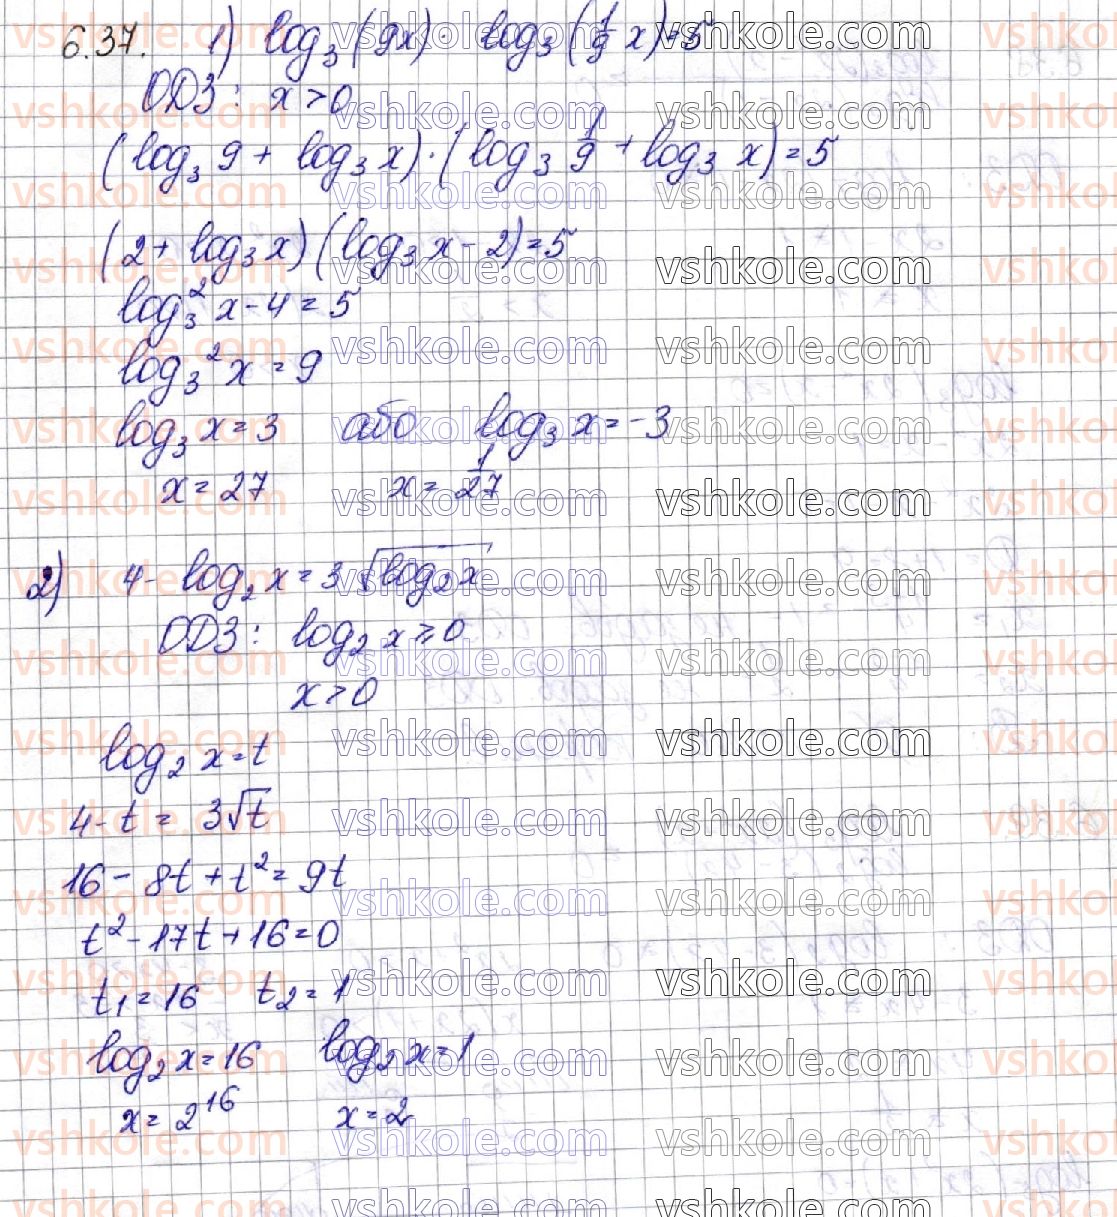 6.37. 1) log₃(9x) · log₃(1/9 x) = 5
ОДЗ: x > 0
(log₃ 9 + log₃ x) · (log₃ 1/9 + log₃ x) = 5
(2 + log₃ x)(log₃ x - 2) = 5
log₃² x - 4 = 5
log₃² x = 9
log₃ x = 3 або log₃ x = -3
x = 27 x = 1/27
2) 4 - log₂ x = 3√log₂ x
ОДЗ: log₂ x ≥ 0
x > 0
log₂ x = t
4 - t = 3√t
16 - 8t + t² = 9t
t² - 17t + 16 = 0
t₁ = 16 t₂ = 1
log₂ x = 16 log₂ x = 1
x = 2¹⁶ x = 2